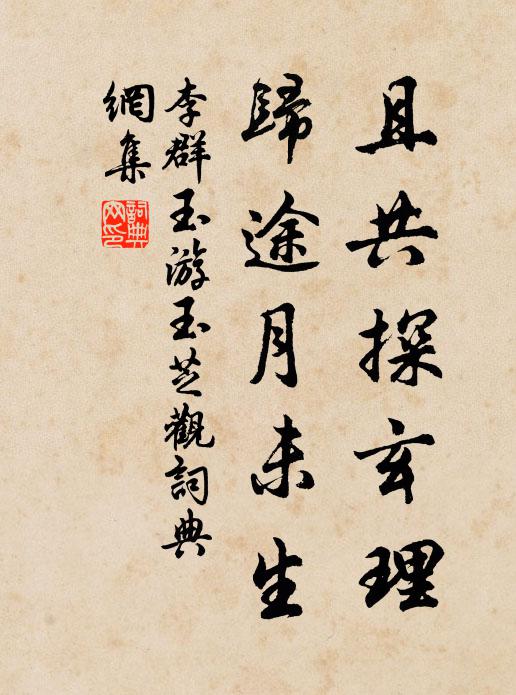 且共探玄理
歸途月未生
李群玉游玉芝觀詞典
網集
詞典
网印